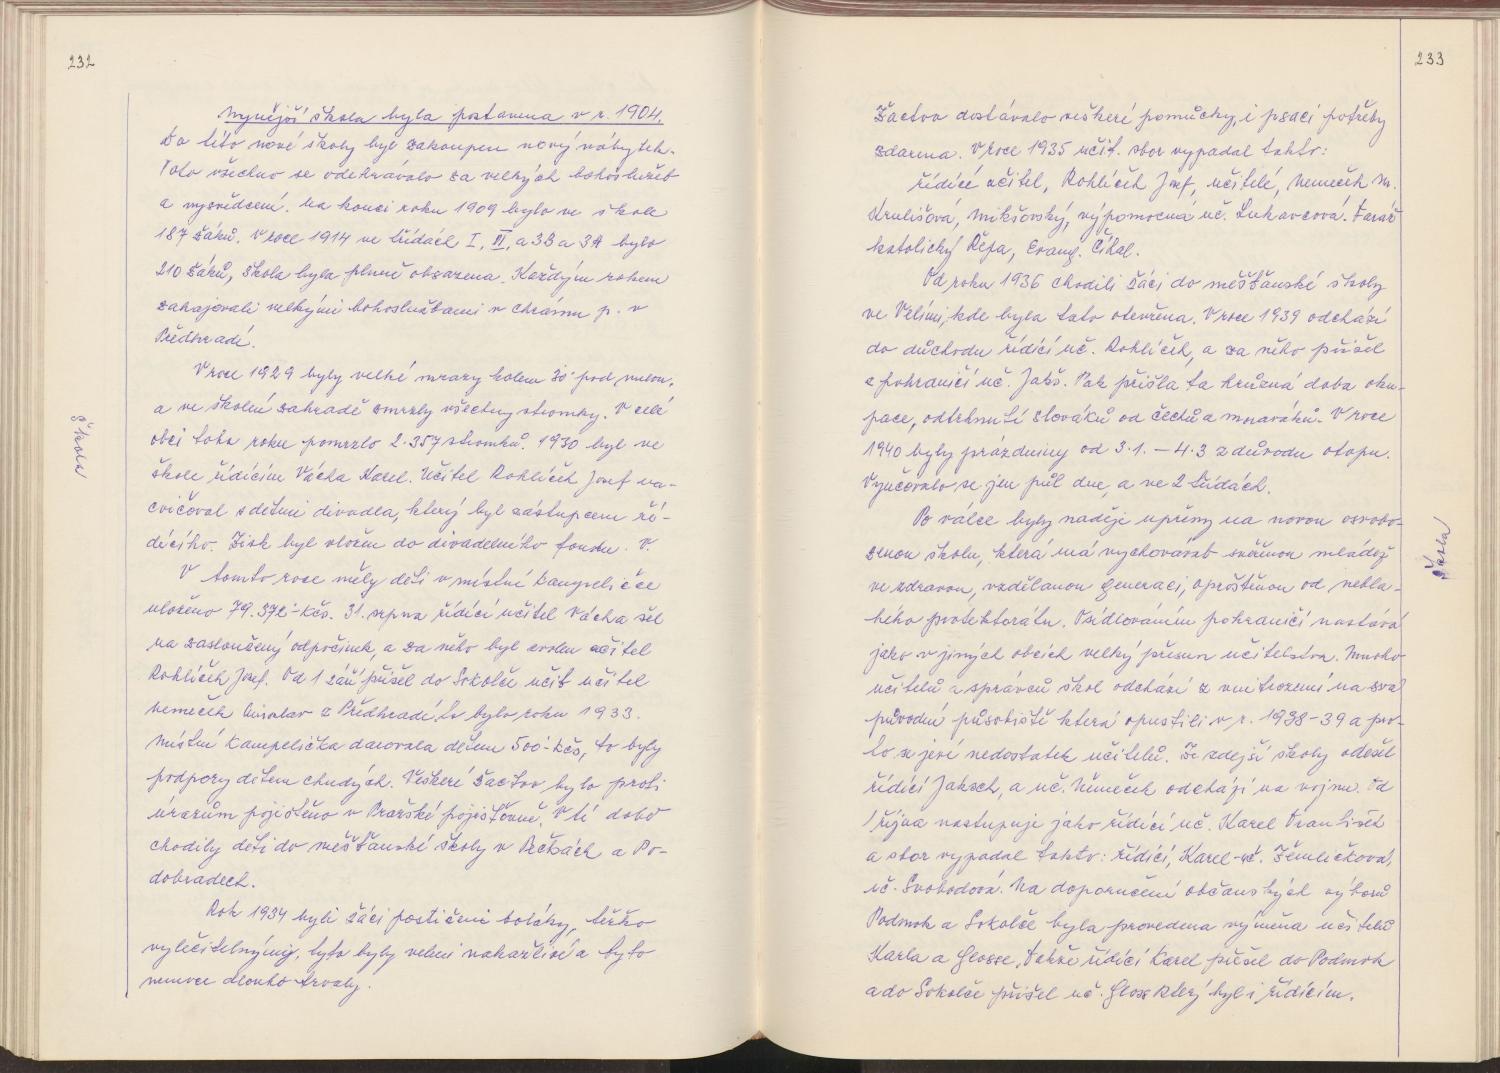 232
Nynější škola byla postavena v r. 1904.
Do této nové školy byl zakoupen nový nábytek.
Toto všechno se odehrávalo za velkých bohoslužeb
a vysvědcení. Na konci roku 1909 bylo ve škole
187 žáků. V roce 1914 ve třídách I, II, a 3B a 3A bylo
210 žáků, škola byla plně obsazena. Každým rokem
zahajovali velkými bohoslužbami v chrámu p. v
Předhradí.
V roce 1929 byly velké mrazy kolem 30° pod nulou,
a ve školní zahradě zmrzly všechny stromky. V celé
obci toho roku pomrzlo 2.357 stromků. 1930 byl ve
škole řídícím Vácha Karel. Učitel Rohlíček Josef na-
cvičoval s dětmi divadla, který byl zástupcem ří-
dícího. Zisk byl vložen do divadelního fondu. V.
V tomto roce měly děti v místní kampeličce
uloženo 79.372·- Kčs. 31. srpna řídící učitel Vácha šel
na zasloužený odpočinek, a za něho byl zvolen učitel
Rohlíček Josef. Od 1 září přišel do Sokolče učit učitel
Nemeček Miroslav z Předhradí, to bylo roku 1933.
Místní Kampelička darovala dětem 500·- Kčs, to byly
podpory dětem chudých. Veškeré žactvo bylo proti
úrazům pojištěno v Pražské pojišťovně. V té době
chodily děti do měšťanské školy v Pečkách a Po-
děbradech.
Rok 1934 byli žáci postiženi boláky, těžko
vyléčitelnými, tyto byly velmi nakažlivé a tyto
nemoce dlouho trvaly.
Škola
233
Žactvo dostávalo veškeré pomůcky, i psací potřeby
zdarma. V roce 1935 učit. sbor vypadal takto:
řídící učitel, Rohlíček Josef, učitelé, Nemeček M.
Krulišová, Mikšovský, výpomocná uč. Lukavcová. Farář
katolický Řepa, Evang. Číhal.
Od roku 1936 chodili žáci do měšťanské školy
ve Velimi, kde byla tato otevřena. V roce 1939 odchází
do důchodu řídící uč. Rohlíček, a za něho přišel
z pohraničí uč. Jakš. Pak přišla ta hrůzná doba oku-
pace, odtrhnutí Slováků od Čechů a Moraváků. V roce
1940 byly prázdniny od 3.1. – 4.3 z důvodu otopu.
Vyučovalo se jen půl dne, a ve 2 třídách.
Po válce byly naděje upřeny na novou osvobo-
zenou školu, která má vychovávat svěřenou mládež
ve zdravou, vzdělanou generaci, oproštěnou od nebla-
hého protektorátu. Osídlováním pohraničí nastává
jako v jiných obcích velký přesun učitelstva. Mnoho
učitelů a správců škol odchází z vnitrozemí na svá
původní působiště která opustili v r. 1938-39 a pro-
to se jeví nedostatek učitelů. Ze zdejší školy odešel
řídící Jaksch, a uč. Němeček odchází na vojnu. Od
1 října nastupuje jako řídící uč. Karel František
a sbor vypadal takto: řídící, Karel - uč. Žemličková,
uč. Svobodová. Na doporučení občanských výborů
Podmok a Sokolče byla provedena výměna učitelů
Karla a Glosse, takže řídící Karel přišel do Podmok
a do Sokolče přišel uč. Gloss který byl i řídícím.
Škola